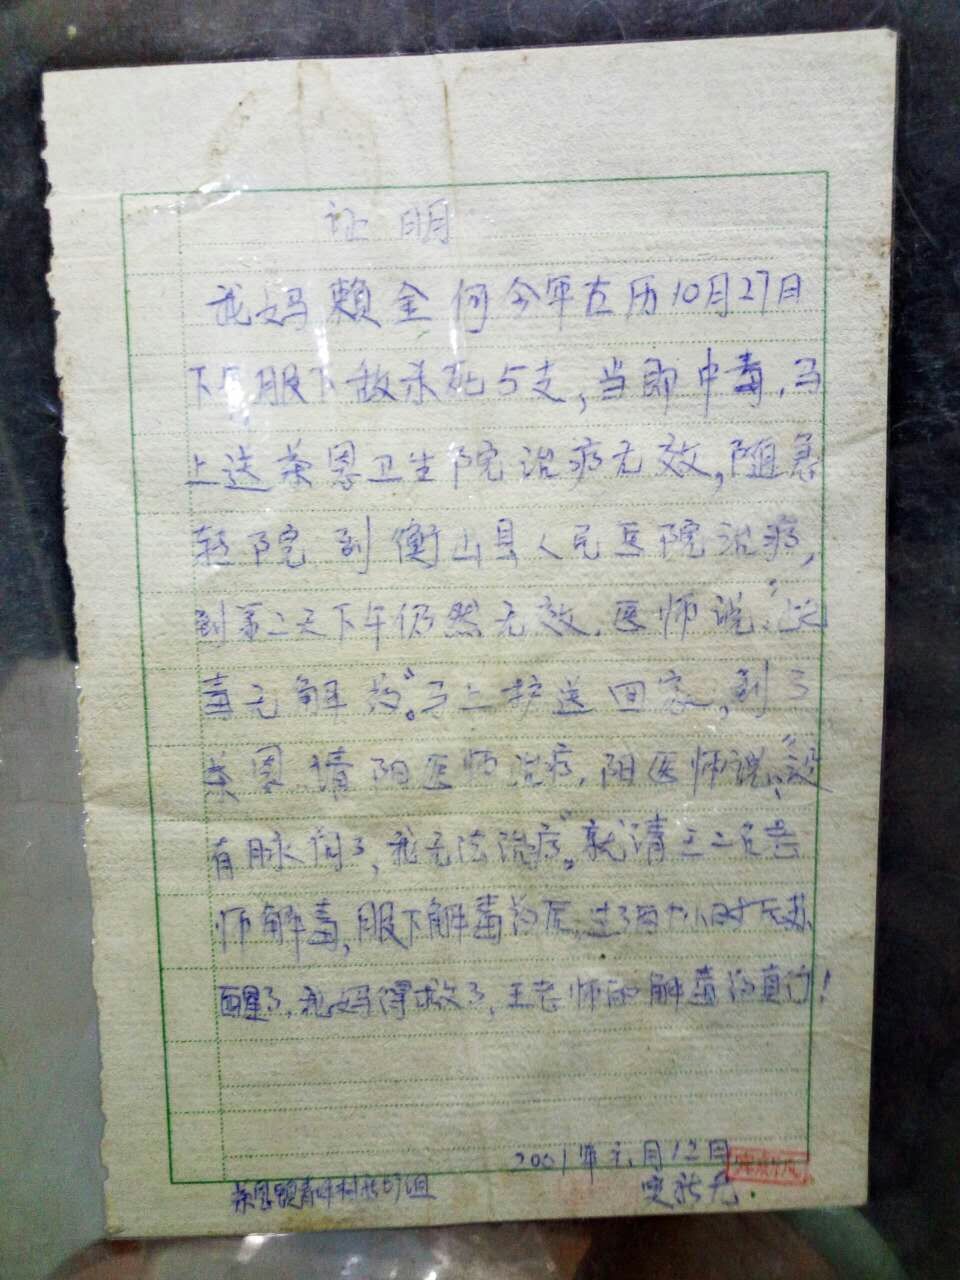 证明
我妈赖金何今年古历10月27日
下午服下敌杀死5支,当即中毒,马
上送荣恩卫生院治疗无效,随急
转院到衡山县人民医院治疗,
到第二天下午仍然无效,医师说:"此
毒无解药"。马上护送回家,到了
荣恩请阳医师治疗,阳医师说:"没
有脉门了,我无法治疗"。就请王二名老
师解毒,服下解毒药后,过了四个小时
醒了,我妈得救了,王老师的解毒药真行!
2001年元月12日